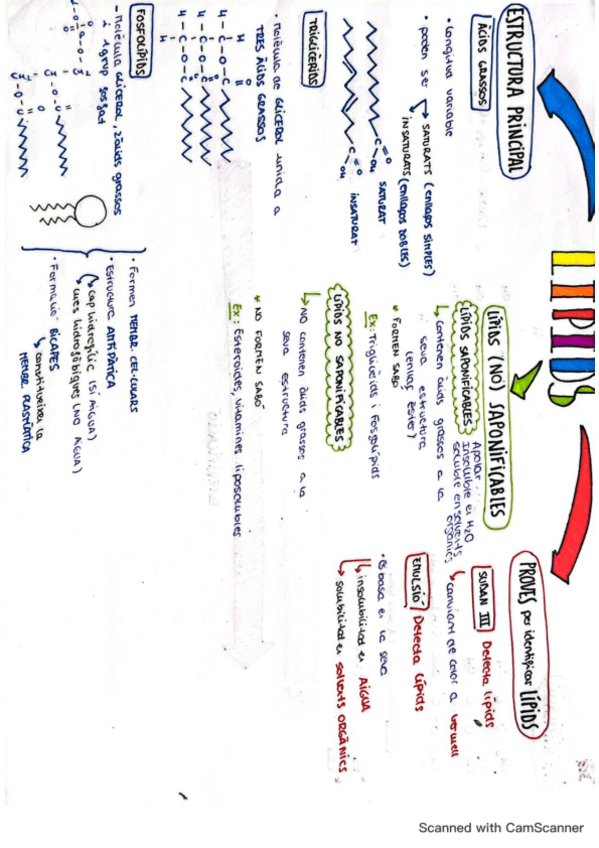 LIPIDS
ESTRUCTURA PRINCIPAL
ÀCIDS GRASSOS
• Longitud variable
• poden ser
SATURATS (enllaços simples)
INSATURATS (enllaços DOBLES)
C
O
OH
SATURAT
C
O
OH
INSATURAT
TRIGLICÈRIDS
• Molècula de GLICEROL unida a
TRES ÀCIDS GRASSOS
H
H-C-O-C
H-C-O-C
H-C-O-C
H
FOSFOLÍPIDS
- Molècula GLICEROL, 2 àcids grassos
i 1 grup fosfat
• Formen MEMBR. CEL·LULARS
• Estructura AMFIPÀTICA
cap hidrofílic (SÍ AIGUA)
cues hidrofòbiques (NO AGUA)
BICAPES
constitueixen la
MEMBR. PLASMÀTICA
LÍPIDS (NO) SAPONIFICABLES
Apolar
Insoluble en H2O
soluble en solvents
orgànics
LÍPIDS SAPONIFICABLES
contenen àcids grassos a la
seva estructura
(enllaç èster)
* FORMEN SABÓ
Ex: Triglicèrids i Fosfolípids
LÍPIDS NO SAPONIFICABLES
NO contenen àcids grassos a la
seva estructura
* NO FORMEN SABÓ
Ex: Esteroides, vitamines liposolubles
PROVES per identificar LÍPIDS
SUDAN III Detecta lípids
canviant de color a vermell
EMULSIÓ Detecta lípids
• es basa en la seva
insolubilitat en AIGUA
solubilitat en solvents ORGÀNICS
Scanned with CamScanner